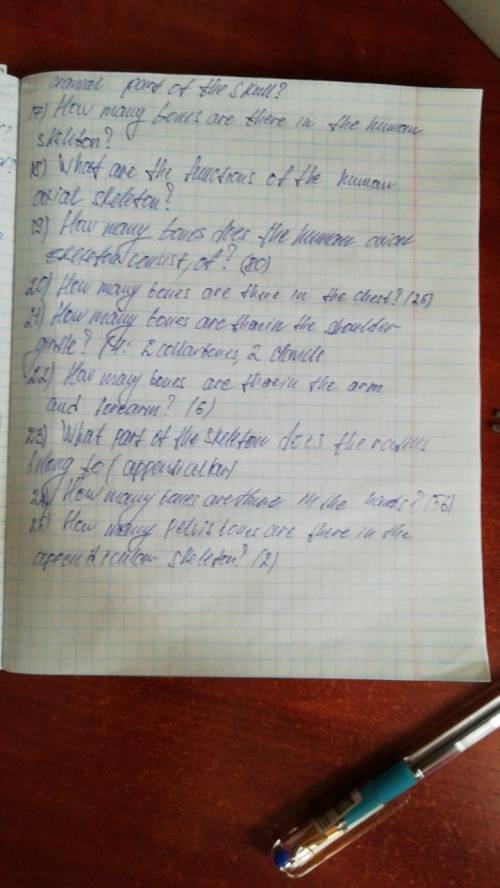 part of the skull?
17) How many bones are there in the human
skeleton?
18) What are the functions of the human
axial skeleton?
19) How many bones does the human axial
skeleton consist, of? (80)
20) How many bones are there in the chest? (25)
21) How many bones are there in the shoulder
girdle? (4: 2 collarbones, 2
22) How many bones are there in the arm
and forearm? (6)
23) What part of the skeleton does the
belong to (appendicular)
24) How many bones are there in the hands? (56)
25) How many pelvis bones are there in the
appendicular skeleton? (2)